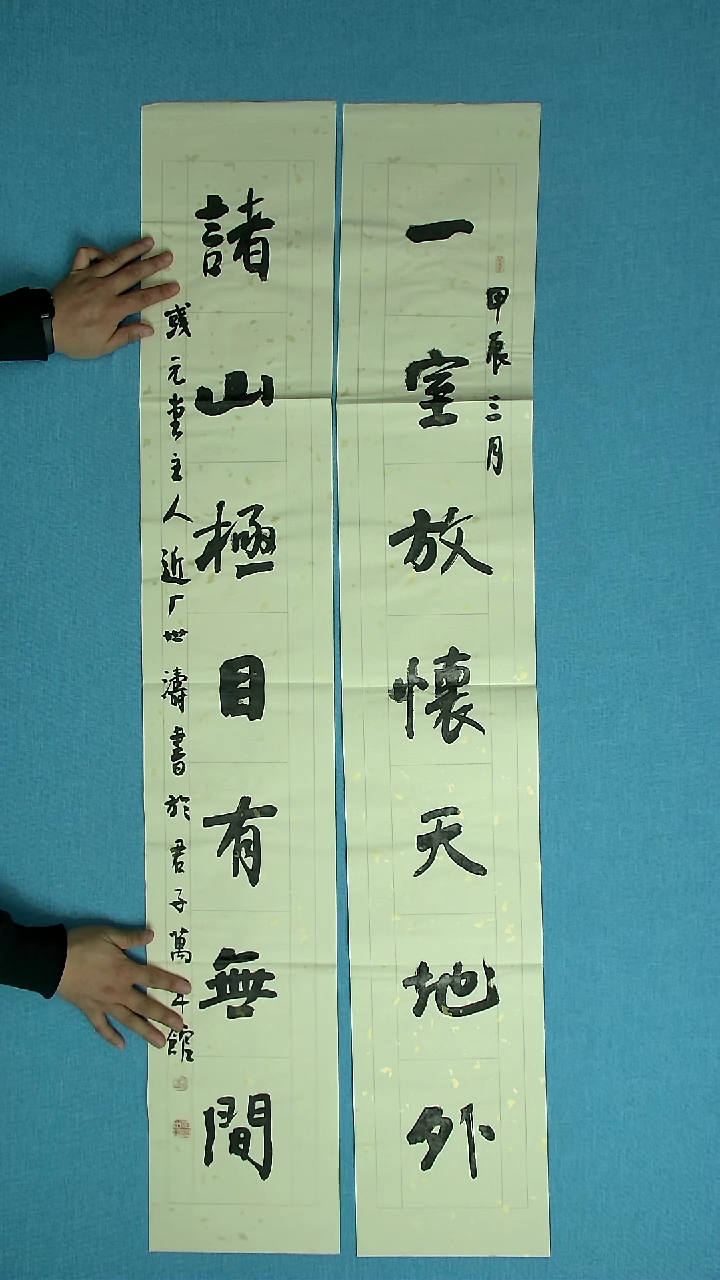 一室放懷天地外
甲辰三月
諸山極目有無間
元堂主人近厂世濤書於君子萬年館